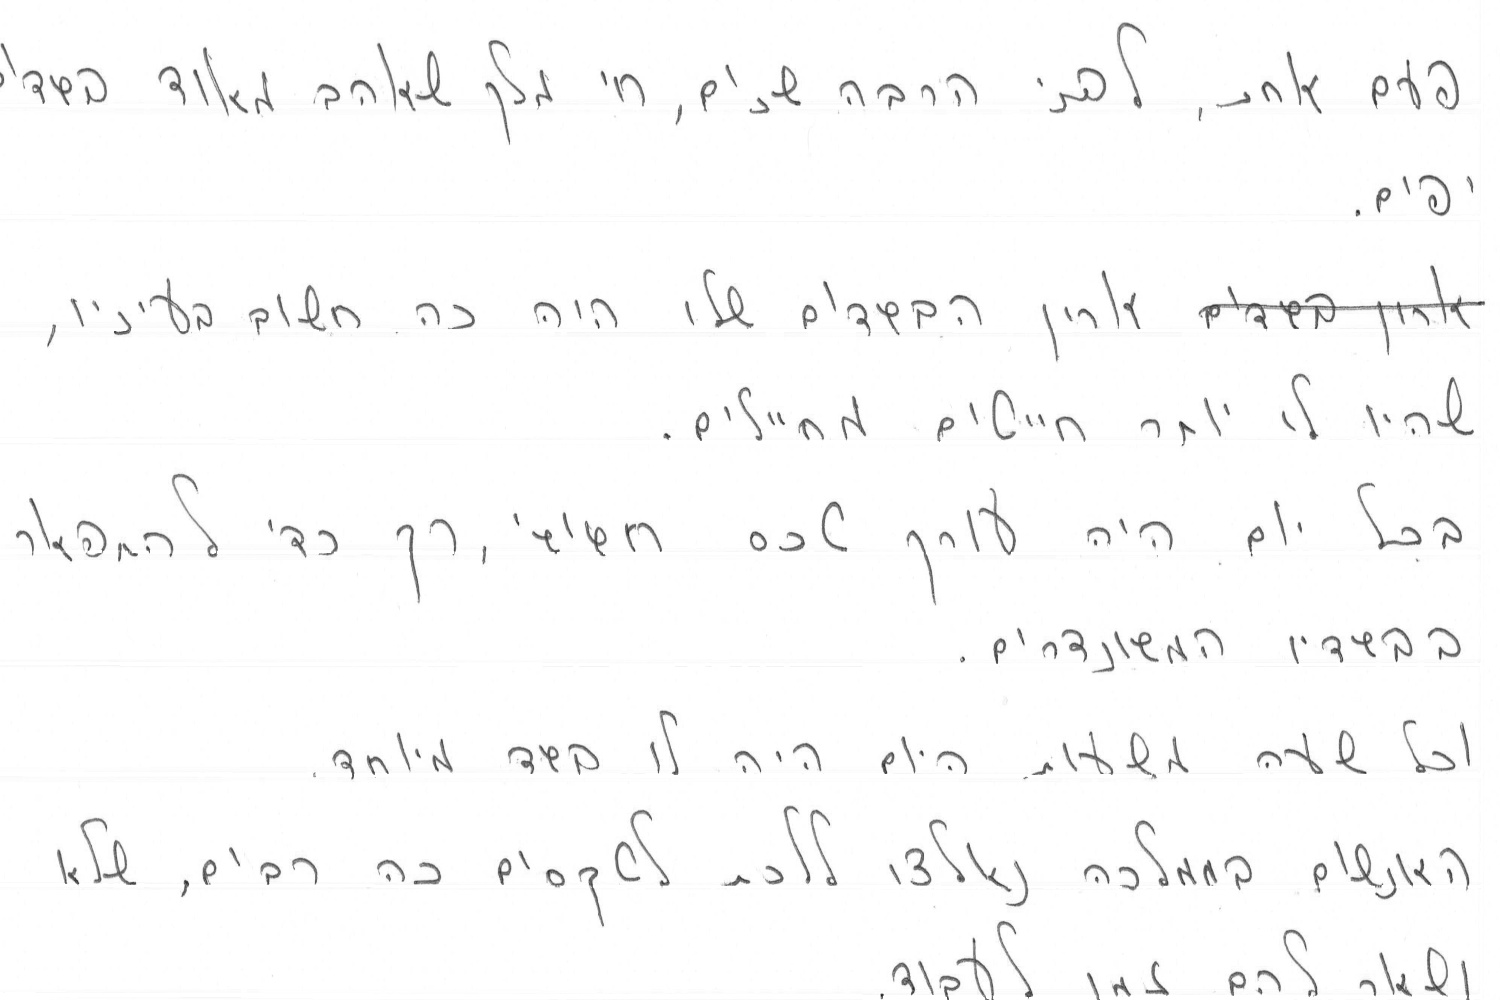 פעם אחת, לפני הרבה שנים, חי מלך שאהב מאוד בגדים
יפים.
ארון בגדים ארון הבגדים שלו היה כה חשוב בעיניו,
שהיו לו יותר חייטים מחיילים.
בכל יום היה עורך טכס חגיגי, רק כדי להתפאר
בבגדיו המהודרים.
וכל שעה משעות היום היה לו בגד מיוחד.
האנשים בממלכה נאלצו ללכת לטקסים כה רבים, שלא
נשאר להם זמן לעבוד.